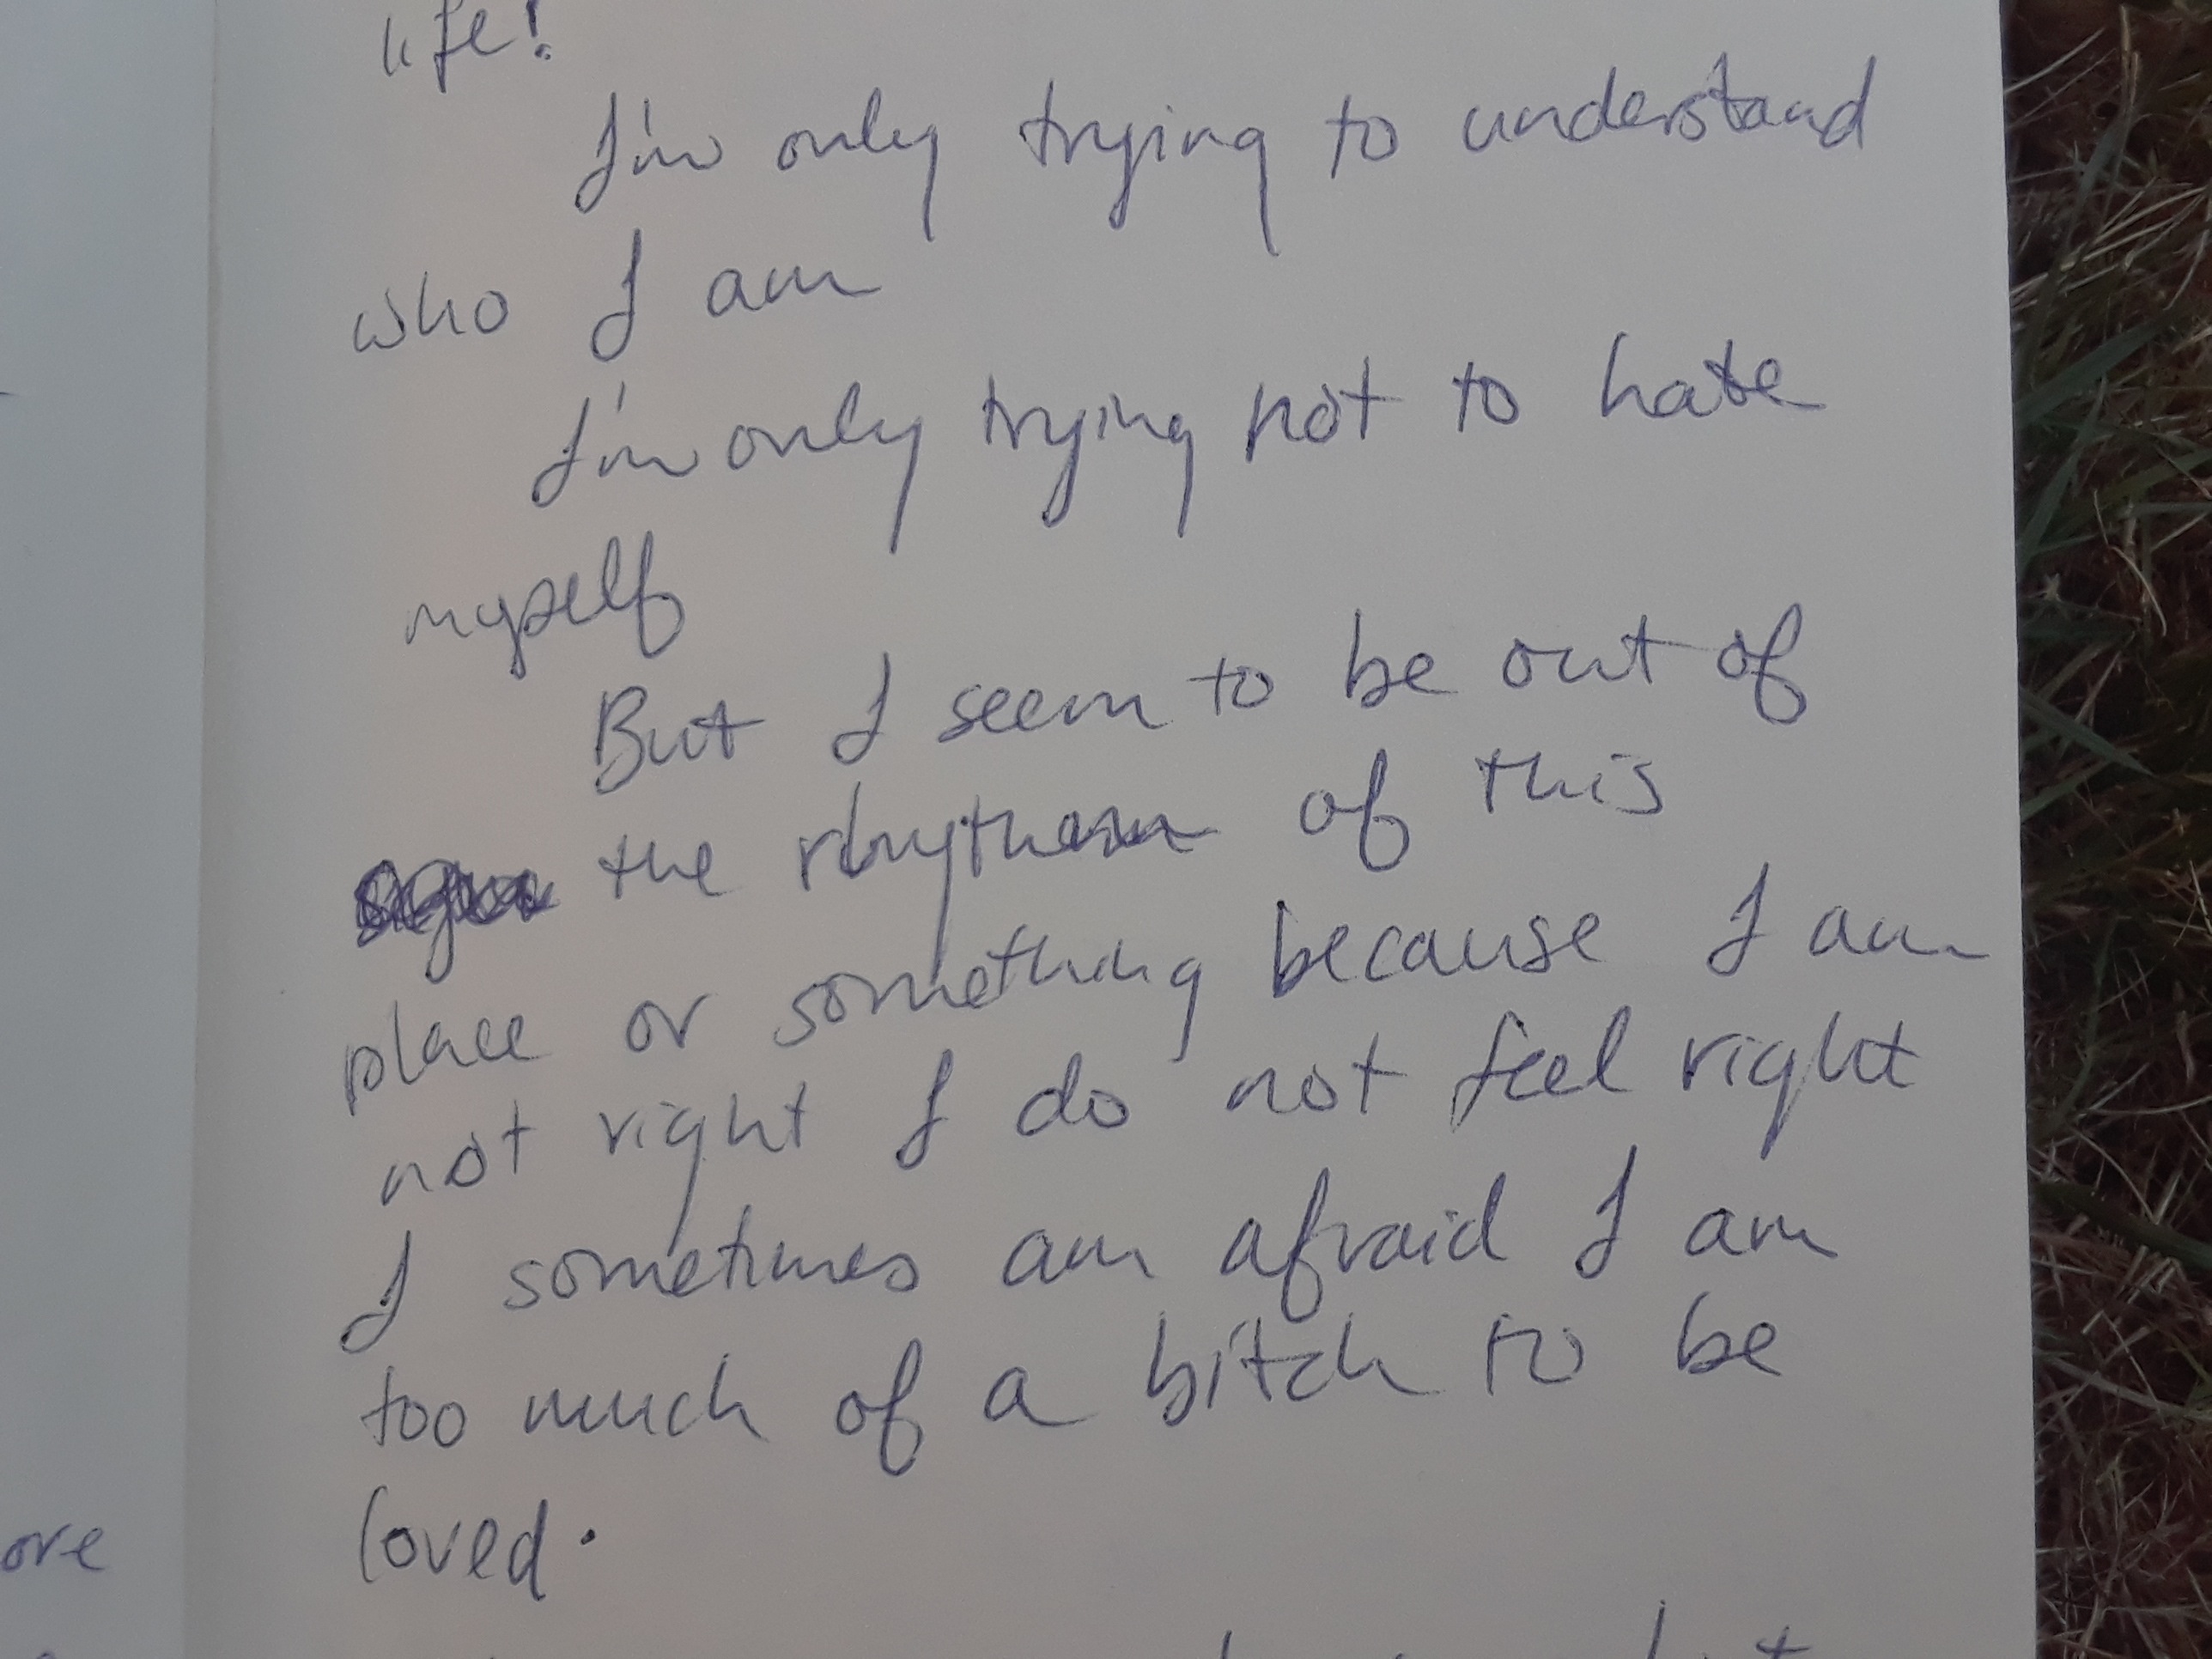 life!
I'm only trying to understand
who I am
I'm only trying not to hate
myself
But I seem to be out of
the rhythem of this
place or something because I am
not right I do not feel right
I sometimes am afraid I am
too much of a bitch to be
loved.
ore